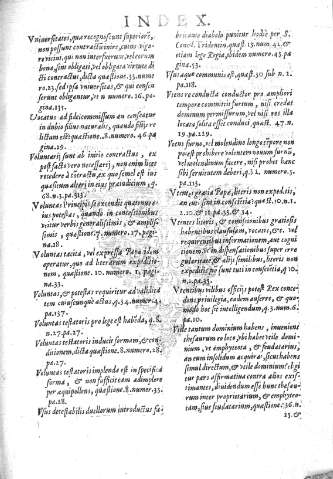 INDEX.
Vniuersitas, quæ recognoscunt superiorē,
non possunt contractiones, cuius vigo-
re
bona, sint obligati, vel obligata virtute di
cti contractus, dicta quæstione.35.numero
23. sed ipsa vniuersitas, & qui consen
serint obligantur, vt n numero 26. pa-
gina.131.
Vocatus ad fideicommissum an censeatur
in dubio filius naturalis, quando filiorum
dicitur electio, quæstione.8. numero.46 pa
gina.29.
Voluntarij sunt ab initio contractus, ex
post facto vero necessarij, non enim licet
recedere à contractu, ex quo semel est ius
quæsitum alteri in eius præiudicium, q.
68.n.3.pa.315.
Voluntas Principis se extendit quantum e-
ius potestas, quando in concessionibus
vtitur verbis generalissimis, & amplis-
simis, quæstione.7. numero.17. pagi-
na.28.
Voluntas tacita, vel expressa Papæ idem
operatur, quo ad literarum expeditio-
nem, quæstione.10. numero.11. pagi-
na.33.
Voluntas, & potestas requiritur ad valida-
tem cuiuscunque actus, q.34.numero.41
pa.137.
Voluntas testatoris pro lege est habēda, q.8.
n.27.pa.27.
Voluntas testatoris inducit formam, & con
ditionem, dicta quæstione.8.numero.28.
pa.27.
Voluntas testatoris implenda est in specifica
forma, & non sufficeret adimplere
per æquipollens, quæstione.8.numero.35.
pa.28.
Vsus detestabilis duellorum introductus fa-
bricante diabolo punitur hodie per S.
Concil. Tridentin. quæst.15.num.41.&
etiam lege Regia, ibidem numero.45.pa-
gina.63.
Vsus aquæ communis est, quæst.30 sub n.2.
pa.117.
Vtens re conducta conductor pro ampliori
tempore committit furtum, nisi credat
dominum permissurum, vel nisi res illi
locata solita esset conduci, quæst. 47.n.
19.pa.219.
Vtens furno, vel molendino longo tempore non
potest prohibere volentem nouum furnū,
vel molendinum facere, nisi probet hanc
sibi seruitutem deberi, q.51. numero.3.
pa.235.
Vtens gratia Papæ, literis non expeditis,
an tutus sit in conscientia; quæst.10.n.1.
2.10.& 11.pa.33.& 34.
Vtens literis, & commissionibus gratiosis
habentibus clausulam, vocatis, & vel re
quirentibus informationem, ante cogni
tionem, & in dispensationibus super cre
dulitate & alijs similibus, literis non
expeditis non sunt tuti in conscientia, q.10.
n.2.pa.33.
Vtentibus nobilibus officijs potest Rex conce-
dere priuilegia, eadem auferre, & quo-
modo hoc sit intelligendum, q.3.num.6.
pa.10.
Vtile tantum dominium habens, inueniens
thesaurum eo loco, vbi habet vtile domi-
nium, vt emphyteota, & feudatarius,
an eum insolidum acquirat, sicut habens
simul directum, & vtile dominium: & li-
cet pars affirmatiua contra alios exi-
stimantes, diuidendum esse hunc thesau-
rum inter proprietarium, & emphyteo-
tam, siue feudatarium, quæstione.36.n.
23.&